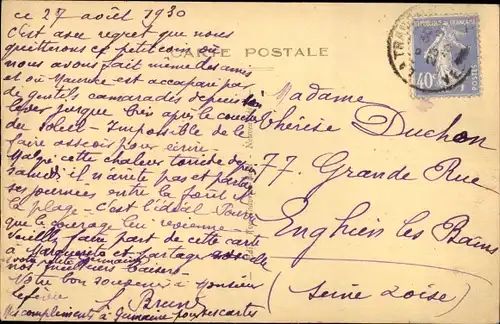 ce 27 août 1930
c'est avec regret que nous
quitterons ce petit coin où
nous avons fait même des amis
et où est accaparé par
de gentils camarades depuis son
lever jusque très après le coucher
du soleil - Impossible de le
faire asseoir pour écrire -
Malgré cette chaleur torride depuis
samedi il n'arrête pas et partage
ses journées entre la forêt &
la plage - c'est l'idéal
que le courage lui revienne -
Veuillez faire part de cette carte
à Marguerite et partage avec elle
nos meilleurs baisers
Votre bon souvenir à Monsieur
Lefèvre
Mes compliments à Germaine pour ses cartes
CARTE POSTALE
REPUBLIQUE FRANÇAISE
40c
POSTES
LA TRAN
Madame
Thérèse Duchon
77 Grande Rue
Enghien les Bains
(Seine & Oise)